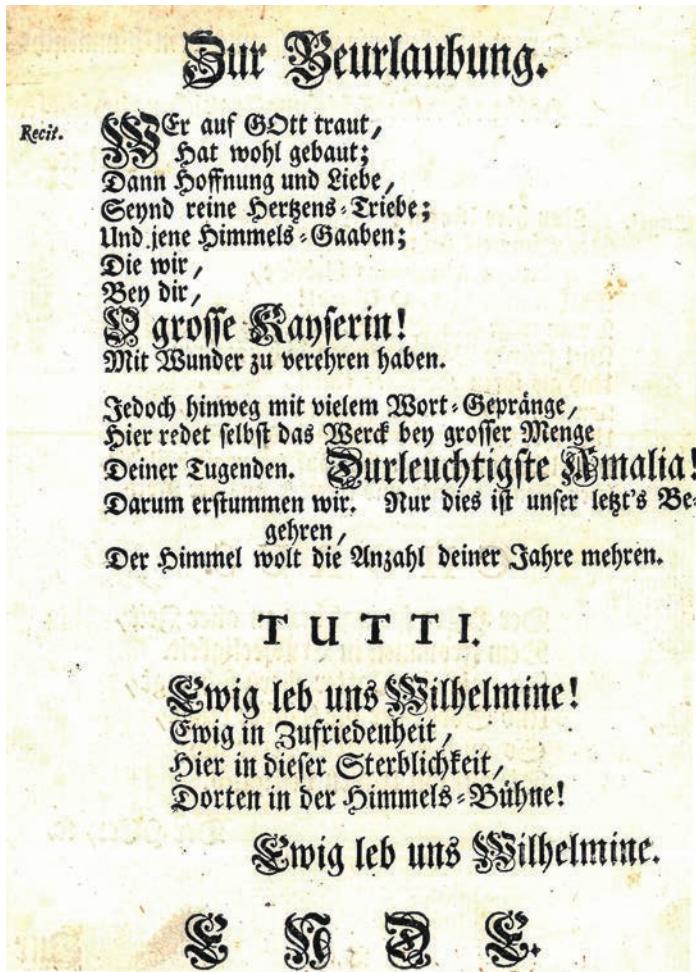 Zur Beurlaubung.
Recit. WEr auf GOtt traut,
Hat wohl gebaut;
Dann Hoffnung und Liebe,
Seynd reine Hertzens-Triebe;
Und jene Himmels-Gaaben;
Die wir,
Bey dir,
O grosse Kayserin!
Mit Wunder zu verehren haben.
Jedoch hinweg mit vielem Wort-Gepränge,
Hier redet selbst das Werck bey grosser Menge
Deiner Tugenden. Durleuchtigste Amalia!
Darum erstummen wir. Nur dies ist unser letzt's Be-
gehren,
Der Himmel wolt die Anzahl deiner Jahre mehren.
TUTTI.
Ewig leb uns Wilhelmine!
Ewig in Zufriedenheit,
Hier in dieser Sterblichkeit,
Dorten in der Himmels-Bühne!
Ewig leb uns Wilhelmine.
ENDE.